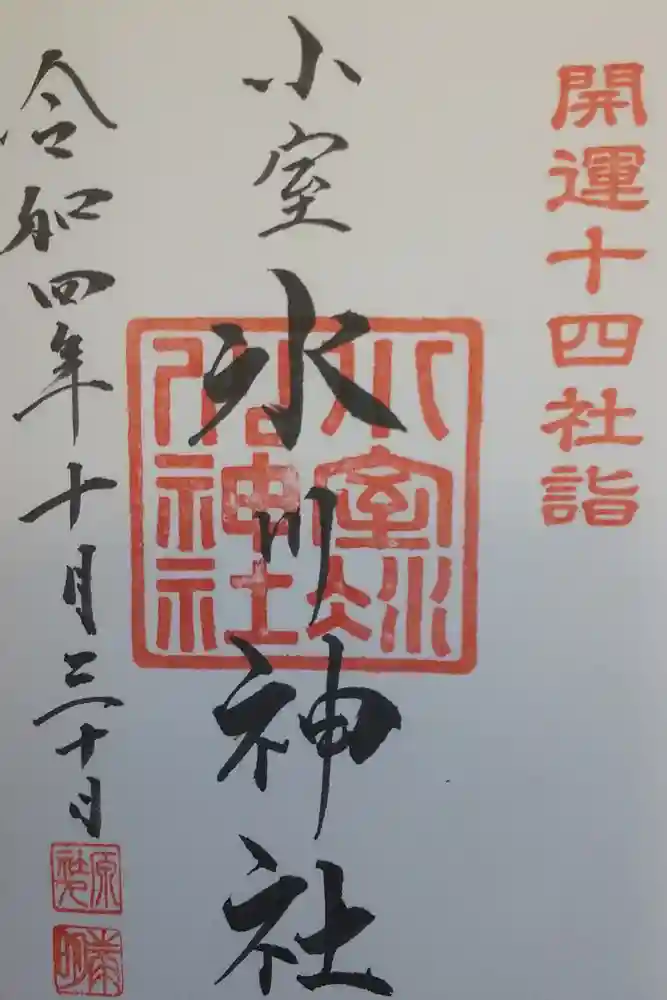 開運十四社詣
小室氷川神社
小室氷川神社
令和四年十月三十日